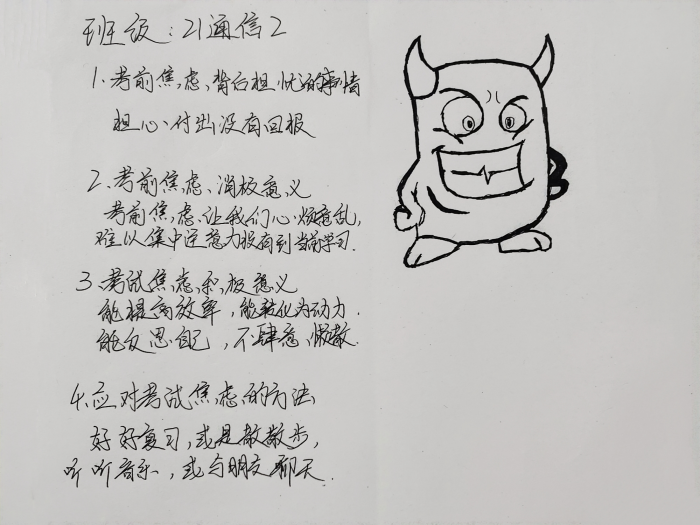 班级:21通信2
1.考前焦虑、背后担忧的事情
担心、付出没有回报
2.考前焦虑、消极意义
考前焦虑、让我们心烦意乱,
难以集中注意力投有到当前学习.
3.考试焦虑积极意义
能提高效率,能转化为动力.
能反思自己,不肆意、懒散.
4.应对考试焦虑的方法
好好复习,或是散散步,
听听音乐,或与朋友聊天.